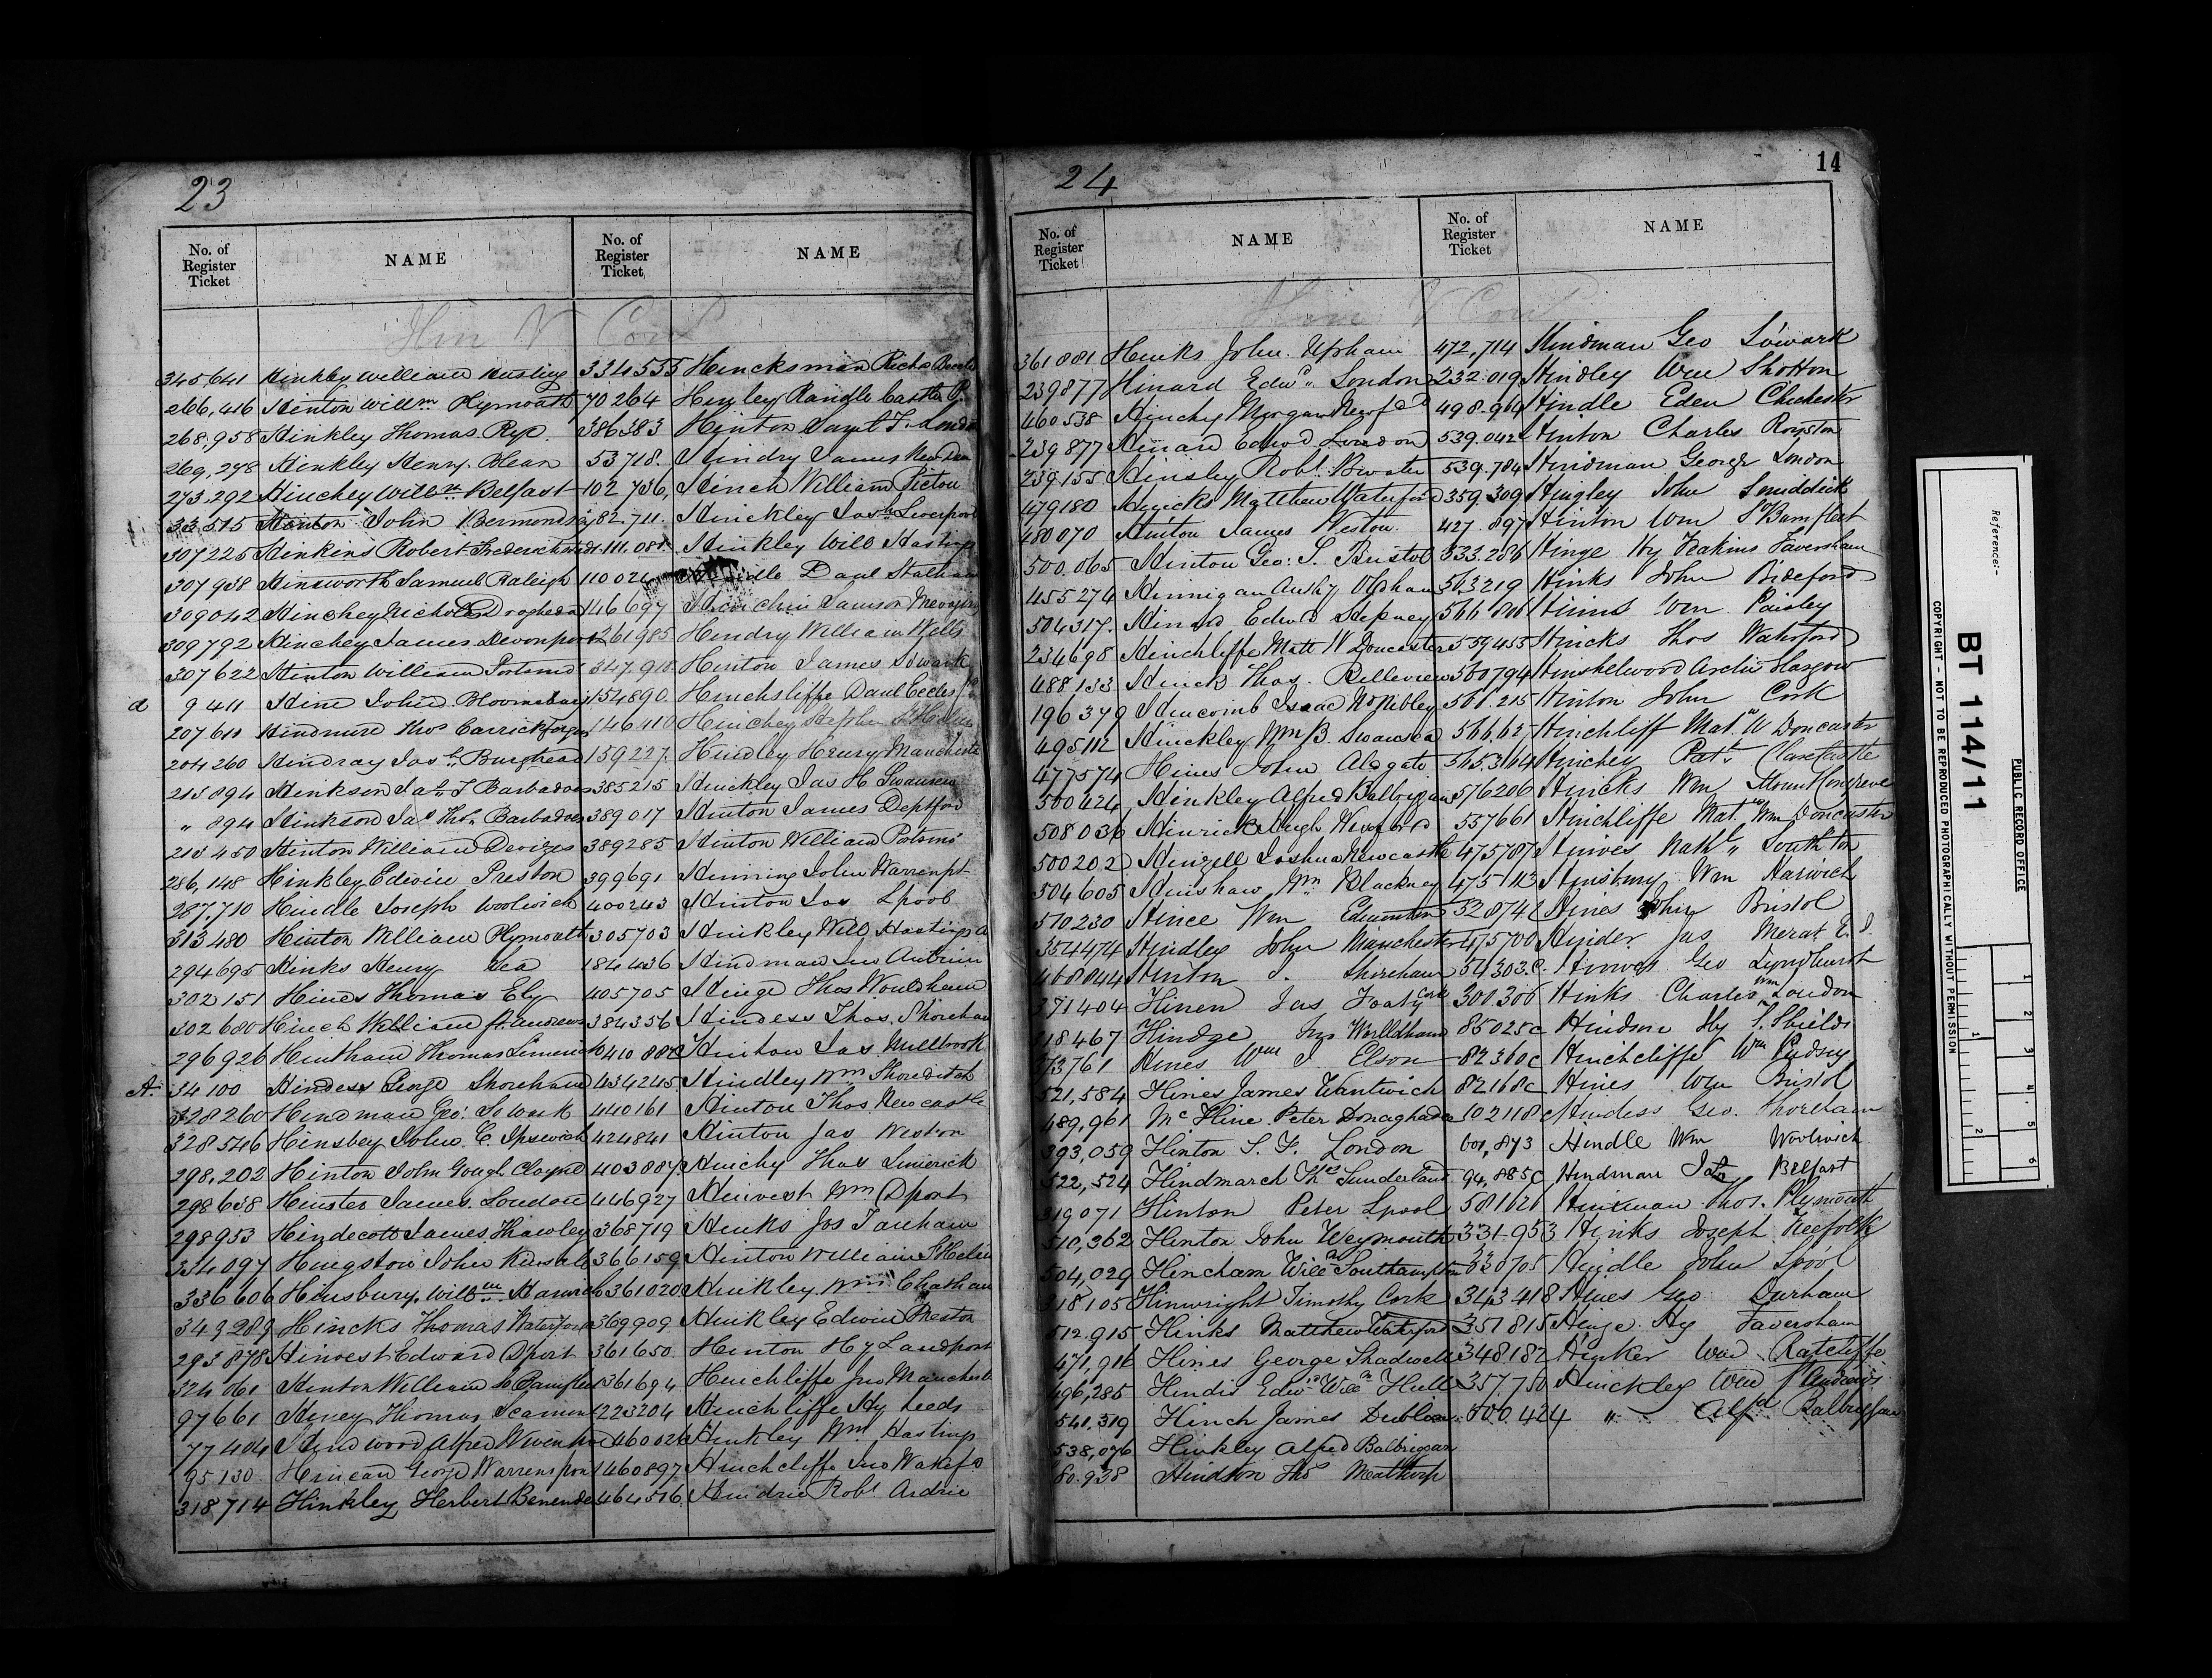 23
No. of Register Ticket NAME No. of Register Ticket NAME
Hin V Con
345,641 Hinkley William Hastings
266,416 Hinton Willm Plymouth
268,958 Hinkley Thomas Rye
269,278 Hinkley Henry Blean
273,292 Hinchey Willm Belfast
33515 Hinton John Bermondsey
307225 Hinkins Robert
307938 Hinsworth Samuel Raleigh
309042 Hinchey Nicholas Drogheda
309792 Hinchey James Devonport
307622 Hinton William Portsmo
a 9411 Hine John Bloomsbury
207611 Hindmire Thos Carrickfergus
204260 Hindray Jas Burghead
215894 Hinkson Jas T Barbadoes
" 894 Hinkson Jas Thos Barbadoes
215450 Hinton William Devizes
286,148 Hinkley Edwin Preston
287,710 Hindle Joseph Woolwich
313480 Hinton William Plymouth
294695 Hinks Henry Sea
302151 Hines Thomas Ely
302680 Hinch William St Andrews
296926 Hintham Thomas Limerick
A 34100 Hindess George Shoreham
328260 Hindman Geo: Sowark
328546 Hinsbey John C. Ipswich
298,202 Hinton John Gough Clayne
298638 Hinster James London
298953 Hindecott James Thawley
334097 Hingston John Kinsale
336606 Hinsbury Willm Harwich
349289 Hincks Thomas Waterford
293878 Hinvest Edward Dport
324061 Hinton William So Bamfleet
97661 Hiney Thomas
77404 Hindwood Alfred Wivenhoe
95130 Hinean George Warrenspoint
318714 Hinkley Herbert Benenden
334555 Hincksman Richd
70264 Hinley Randle Castle
386383 Hinton Saml T. London
53718 Hindry James
102736 Hinch William Picton
82.711 Hinckley Jash Liverpool
111.081 Hinkley Will Hastings
Danl
146697 Samson
261985 Hindry William Wells
347.910 Hinton James Sowark
154890 Hinchsliffe Danl Eccles
146410 Hinchey Stephen St Helier
159227 Hindley Henry Manchester
385215 Hinckley Jas H Swansea
389017 Hinton James Deptford
389285 Hinton William Portsmo
399691 Hinning John Warrenpt
400243 Hinton Jas Lpool
305703 Hinkley Will Hastings
184436 Hindman Jno Antrim
405705 Hinge Thos Wouldham
384356 Hindess Thos. Shoreham
410887 Hinton Jas Millbrook
434245 Hindley Wm Shoreditch
440161 Hinton Thos Newcastle
424841 Hinton Jas Weston
403887 Hinchy Thos Limerick
446927 Hinvest Wm Dport
368719 Hinks Jos Fareham
366159 Hinton William St Helier
361020 Hinkley Wm Chatham
369909 Hinkley Edwin Preston
361650 Hinton Hy Landport
361694 Hinchliffe Jno Manchester
223204 Hinchliffe Hy Leeds
46002 Hinkley Wm Hastings
460897 Hinchcliffe Jno Wakefd
464516 Hindrie Robt Ardrie
24
14
No. of Register Ticket NAME No. of Register Ticket NAME
Hin V Con
361881 Hinks John Upham
239877 Hinard Edwd London
460538 Hinchy Morgan Newfd
239877 Hinard Edwd London
239.155 Hinsley Robt Bwater
479180 Hincks Matthew Waterford
480070 Hinton James Weston
500.065 Hinton Geo: S. Bristol
455274 Hinnigan Anthy Oldham
504317 Hinard Edwd Stepney
234698 Hinchliffe Matt W Doncaster
488,133 Hinck Thos. Belleview
196379 Hincomb Isaac No Nibley
495112 Hinckley Wm B. Swansea
477574 Hines John Aldgate
500424 Hinkley Alfred Balbriggan
508036 Hugh Wexford
500202 Hingell Joshua Newcastle
504605 Hinshaw Wm Blackney
510230 Hince Wm Edmonton
354474 Hindley John Manchester
408044 Hinton J. Shoreham
371404 Hinen Jas Cork
218467 Hindge Jno Worlldham
73761 Hines Wm J Elson
521,584 Hines James Nantwich
489,961 McHine Peter Donaghadee
393,059 Hinton S. F. London
522,524 Hindmarch Thos Sunderland
319071 Hinton Peter Lpool
510,362 Hinton John Weymouth
504,029 Hincham Willm Southampton
318105 Hinwright Timothy Cork
512.915 Hinks Matthew Waterford
471,916 Hines George Shadwell
496,285 Hindis Edwd Willm Hull
541,319 Hinch James Dublin
538,076 Hinkley Alfred Balbriggan
80.938 Hindson Thos
472,714 Hindman Geo Sowark
232.019 Hindley Wm Shotton
498.964 Hindle Eden Chichester
539.042 Hinton Charles Royston
539.784 Hindman George London
359.309 Hingley John Smiddick
427.897 Hinton Wm So Bamfleet
533.286 Hinge Hy Feakins Faversham
563219 Hinks John Bideford
Wm Paisley
559455 Hincks Thos Waterford
560794 Hinshelwood Archd Glasgow
561.215 Hinton John Cork
566.627 Hinchliff Matw W Doncaster
565.364 Hinchey Patk Clarecastle
576206 Hincks Wm
557661 Hinchliffe Matw Wm Doncaster
475787 Hinves Nathl Southton
475113 Hinsbury Wm Harwich
Hines John Bristol
475700 Hinder Jas Merat E. I.
54303.C. Hinves Geo Lyndhurst
300306 Hinks Charles Wm London
85025c Hindson Hy S. Shields
82360c Hinchcliffe Wm Pudsey
82168c Hines Wm Bristol
102118c Hindess Geo. Shoreham
601,873 Hindle Wm Woolwich
94,885c Hindman Jas Belfast
581621 Hinxman Thos. Plymouth
331.953 Hinks Joseph Norfolk
330705 Hindle John Lpool
343418 Hines Geo Durham
351815 Hinge Hy Faversham
348.182 Hinker Wm Ratcliffe
357.750 Hinckley Wm St Andrews
500.424 " Alfd Balbriggan
Reference:-
BT 114/11
PUBLIC RECORD OFFICE
COPYRIGHT - NOT TO BE REPRODUCED PHOTOGRAPHICALLY WITHOUT PERMISSION
1 2 3 4 5 6
1 2